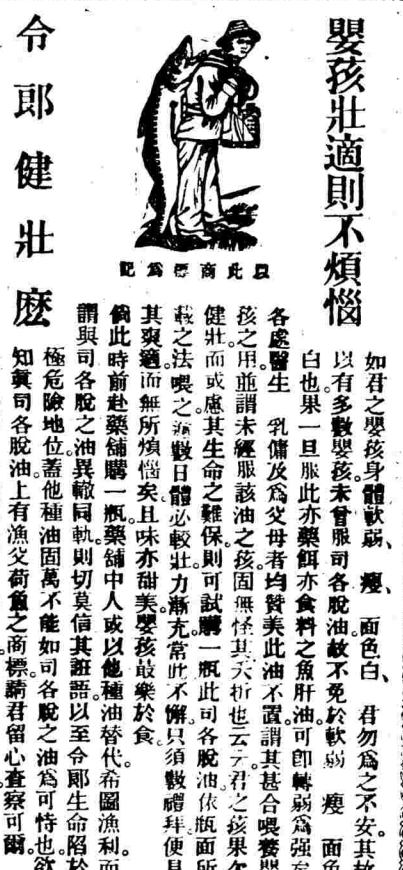 嬰孩壯適則不煩惱
以此商標為記
令郎健壯麽
如君之嬰孩身體軟弱、瘦、面色白、君勿為之不安。其故
以有多數嬰孩未曾服司各脫油。故不免於軟弱 瘦 面色
白也。果一旦服此亦藥餌亦食料之魚肝油。可卽轉弱為强
各處醫生 乳傭及為父母者均贊美此油不置。謂其甚合喂養嬰
孩之用。並謂未經服該油之孩固無怪其夭折也云云。君之孩果欠
健壯而或慮其生命之難保。則可試購一瓶此司各脫油。依瓶面所
載之法喂之。數日體必較壯力漸充。當此不懈。只須數禮拜便見
其爽適而無所煩惱矣。且味亦甜美。嬰孩最樂於食。
倘此時前赴藥舖購一瓶。藥舖中人或以他種油替代。希圖漁利。而
謂與司各脫之油異轍同軌。則切莫信其誑語。以至令郎生命陷於
極危險地位。蓋他種油固萬不能如司各脫之油為可恃也。欲
知眞司各脫油上有漁父荷魚之商標。請君留心查察可爾。